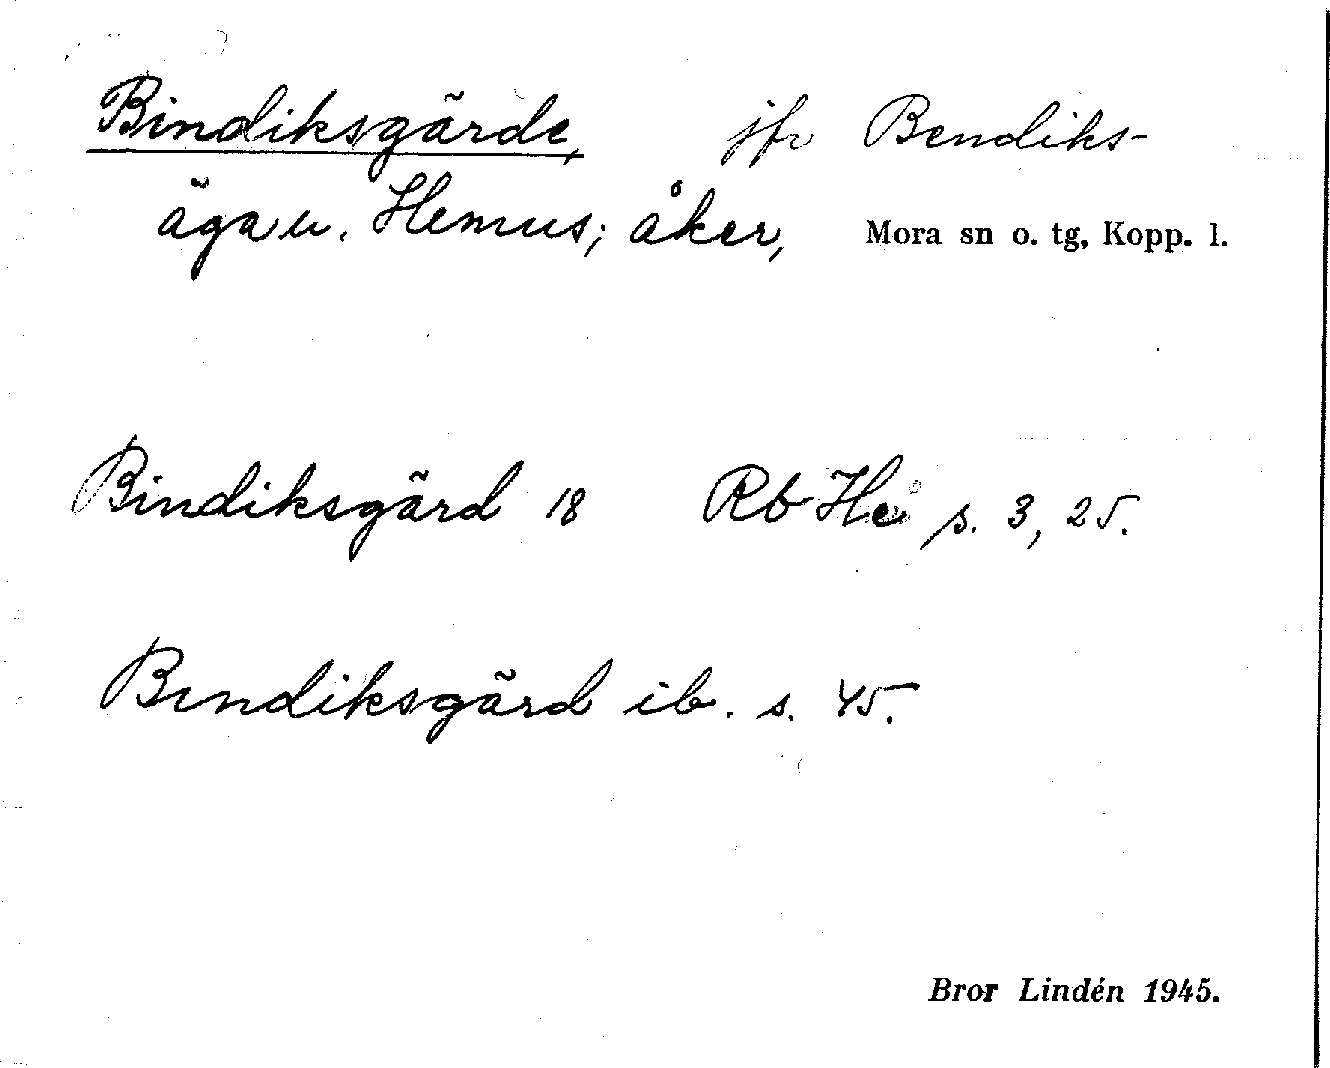 Bindiksgärde, jfr Bendiks-
äga u. Hemus; åker, Mora sn o. tg, Kopp. l.
Bindiksgärd 18 Rb He s. 3, 25.
Bendiksgärd ib. s. 45.
Bror Lindén 1945.